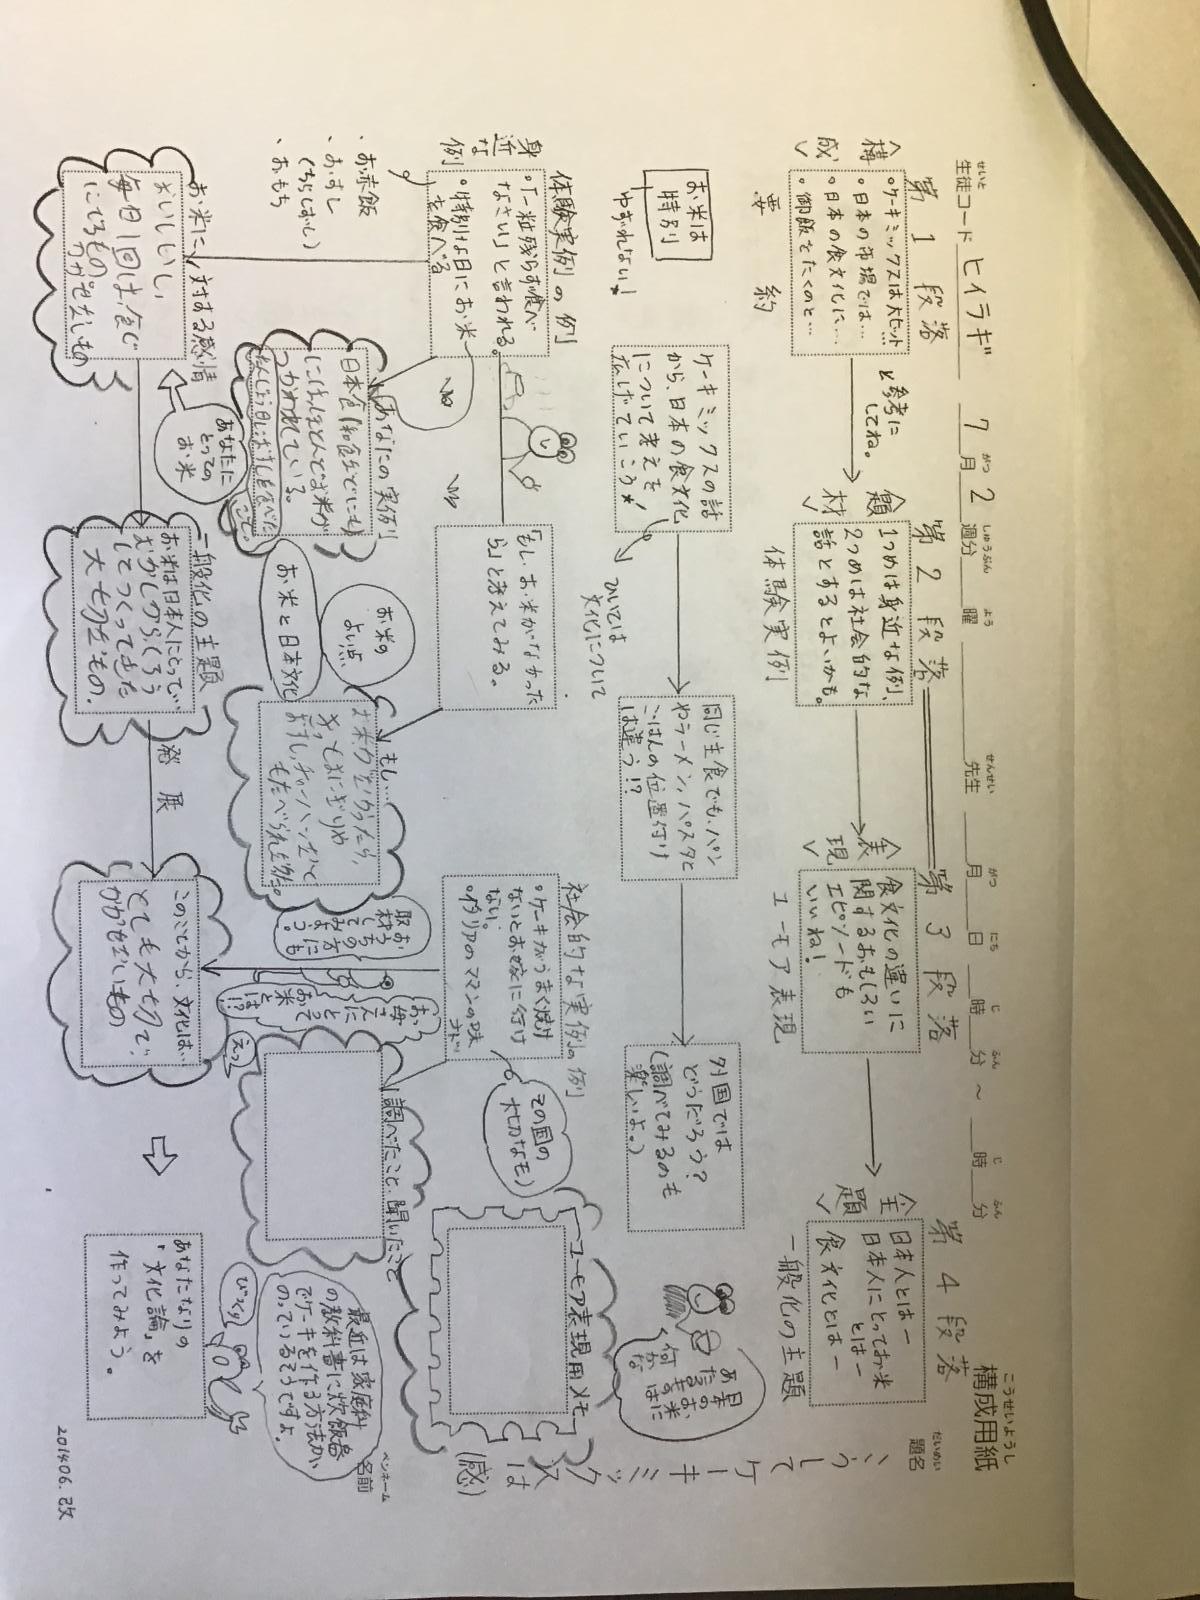 構成用紙
こうせいようし
生徒コード ヒイラギ 7月2週分 曜 先生 月 日 時 分 ～ 時 分
せいと がつ しゅうぶん よう せんせい がつ にち じ ふん じ ふん
題名
だいめい
こうして
ケーキミックスは
(感)
ペンネーム
名前
第1段落
第2段落
第3段落
第4段落
<構成>
要約
・ケーキミックスは大ヒット…
・日本の市場では…
・日本の食文化に…
・御飯をたくのと…
を参考に
してね。
<題材>
体験実例
1つめは身近な例、
2つめは社会的な
話とするとよいかも。
<表現>
ユーモア表現
食文化の違いに
関するおもしろい
エピソードも
いいね！
<主題>
一般化の主題
日本人とはー
日本人にとってお米
とはー
食文化とはー
お米は
特別
ゆずれない！
ケーキミックスの話
から、日本の食文化
について考えを
広げていこう
ひいては
文化について
同じ主食でも、パン
やラーメン、パスタと
ごはんの位置付け
は違う！？
外国では
どうだろう？
(調べてみるのも
楽しいよ。)
あなたの
お米は何かな
体験実例の例
身近な例
・「一粒残らず食べ
なさい」と言われる。
・特別な日にお米
を食べる
・お赤飯
・おすし
(ちらしずし)
・おもち
「もし、お米がなかった
ら」と考えてみる。
社会的な実例の例
・ケーキがうまく焼け
ないとお嫁に行け
ない。
・イタリアのマンマの味
など…
その国の
大切なモノ
ユーモア表現用メモ
あなたの実例
日本食(和食などにも)
にはほとんどお米が
つかわれている。
たんじょう日におすしを食べた
お米の
よい点
お米と日本文化
もし…
お米がなかったら、
おにぎりや
おすし、チャーハンなど
もたべられない。
取材してみよう。
お母さんにとって
お米とは！？
えっ
調べたこと、聞いたこと
最近は家庭科
の教科書に炊飯器
でケーキを作る方法が
のっているそうですよ。
びっくり
お米に対する感情
おいしいし
毎日1回は食じ
にでるもの。
かかせないもの
あなたに
とっての
お米
一般化の主題
お米は日本人にとって…
むかしからくろう
してつくってきた
大切なもの。
発展
このことから、文化は…
とても大切で、
かかせないもの
あなたなりの
「文化論」を
作ってみよう。
201406.改